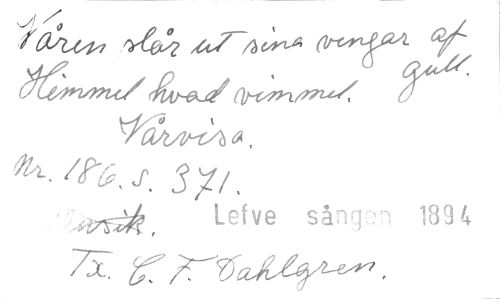 Våren slår ut sina vingar af gull.
Himmel hvad vimmel.
Vårvisa.
Nr. 186. s. 371.
Musik. Lefve sången 1894
Tx. C. F. Dahlgren.